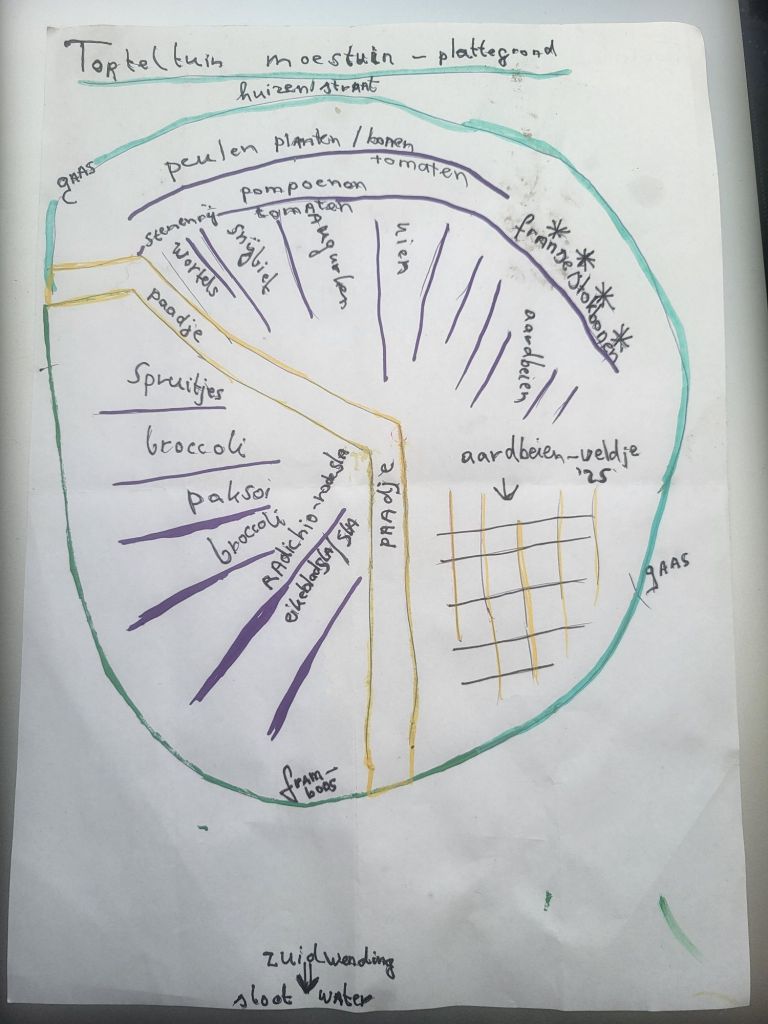 Torteltuin moestuin - plattegrond
huizen/straat
gaas
peulen planten / bonen
tomaten
pompoenen
tomaten
stenenrij
wortels
snijbiet
augurken
uien
franse stokbonen
paadje
aardbeien
spruitjes
broccoli
paksoi
broccoli
RAdichio-rodesla
eikebladsla/sla
PAAdje
aardbeien-veldje
'25
gAAS
fram-
boos
zuidwending
sloot water